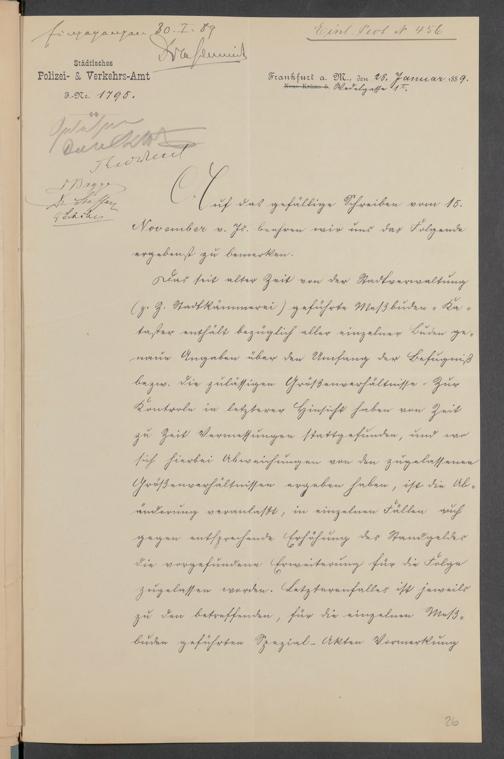 Eingegangen 30. I. 89
Einl. Prot. N 456
Städtisches
Polizei- & Verkehrs-Amt
J.-Nr. 1795.
Frankfurt a. M., den 28. Januar 1889.
Auf das gefällige Schreiben vom 15.
November v. Js. beehren wir uns das Folgende
ergebenst zu bemerken.
Das seit alter Zeit von der Stadtverwaltung
(z. Z. Stadtkämmerei) geführte Meßbuden-Ka-
taster enthält bezüglich aller einzelner Buden ge-
naue Angaben über den Umfang der Befugniß
bezw. die zulässigen Größenverhältnisse. Zur
Kontrole in letzterer Hinsicht haben von Zeit
zu Zeit Vermessungen stattgefunden, und wo
sich hierbei Abweichungen von den zugelassenen
Größenverhältnissen ergeben haben, ist die Ab-
änderung veranlaßt, in einzelnen Fällen auch
gegen entsprechende Erhöhung des Standgeldes
die vorgefundene Erweiterung für die Folge
zugelassen worden. Letzterenfalles ist jeweils
zu den betreffenden, für die einzelnen Meß-
buden geführten Spezial-Akten Vormerkung
26